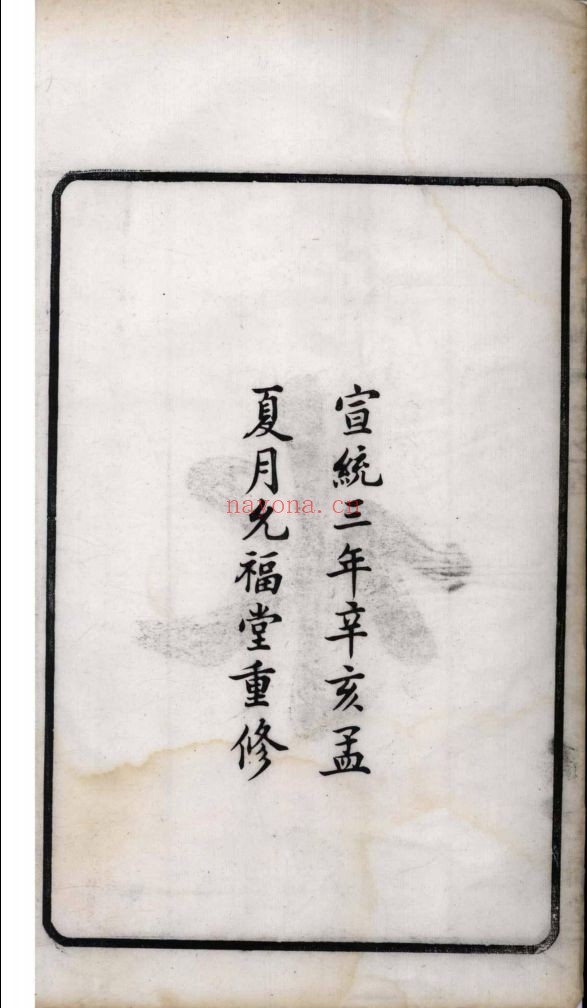 宣統三年辛亥孟
夏月允福堂重修
nayona.cn